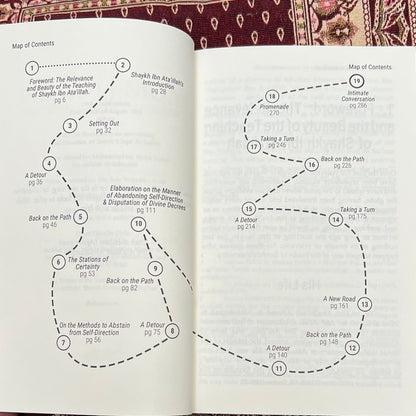 Map of Contents
1
Foreword: The Relevance
and Beauty of the Teaching
of Shaykh Ibn Ata'illah
pg 6
2
Shaykh Ibn Ata'illah's
Introduction
pg 28
3
Setting Out
pg 32
4
A Detour
pg 36
5
Back on the Path
pg 46
6
The Stations of
Certainty
pg 53
7
On the Methods to Abstain
from Self-Direction
pg 56
8
A Detour
pg 75
9
Back on the Path
pg 82
Elaboration on the Manner
of Abandoning Self-Direction
& Disputation of Divine Decrees
pg 111
10
Map of Contents
11
A Detour
pg 140
12
Back on the Path
pg 148
13
A New Road
pg 161
14
Taking a Turn
pg 175
15
A Detour
pg 214
16
Back on the Path
pg 226
17
Taking a Turn
pg 246
18
Promenade
270
19
Intimate
Conversation
pg 286